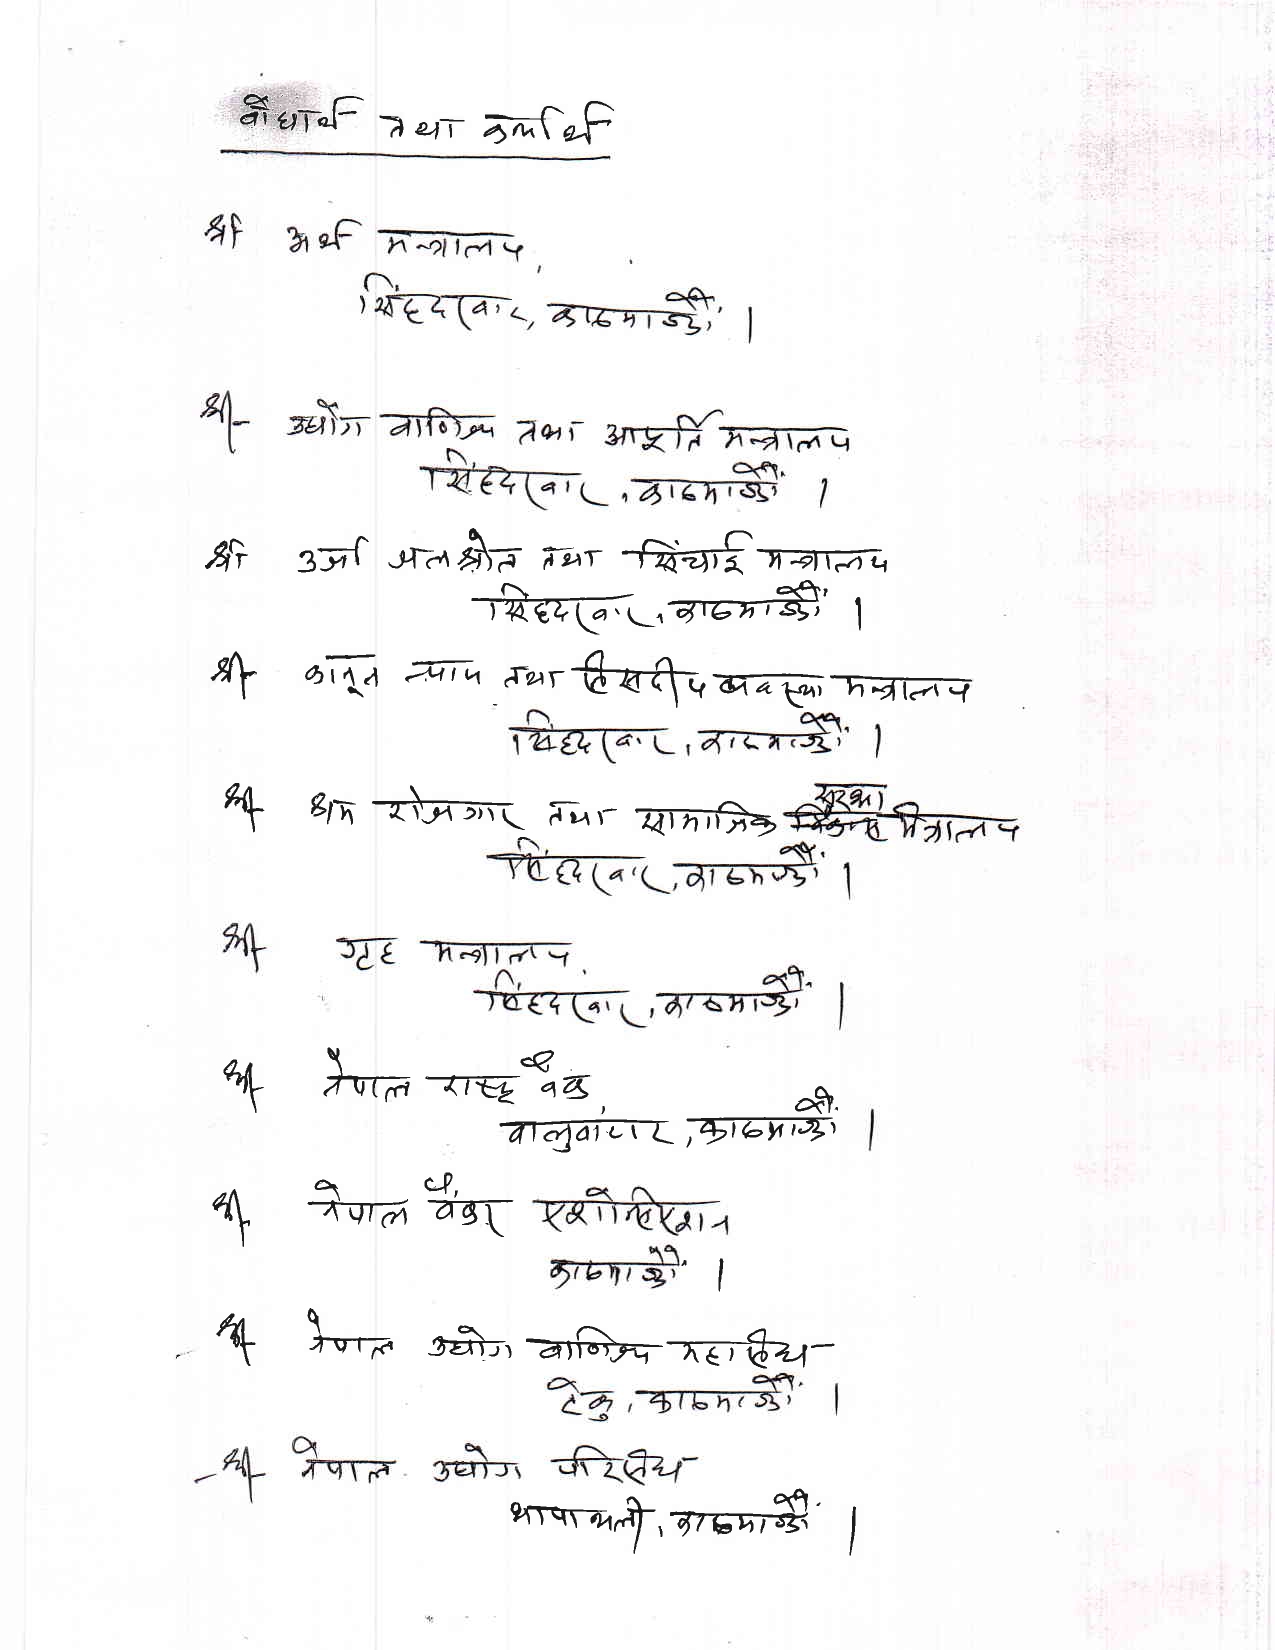 वोधार्थ तथा कार्यार्थ
श्री अर्थ मन्त्रालय,
सिंहदरवार, काठमाण्डौं ।
श्री उद्योग वाणिज्य तथा आपूर्ति मन्त्रालय
सिंहदरवार, काठमाण्डौं ।
श्री उर्जा जलश्रोत तथा सिंचाई मन्त्रालय
सिंहदरवार, काठमाण्डौं ।
श्री कानून न्याय तथा संसदीय व्यवस्था मन्त्रालय
सिंहदरवार, काठमाण्डौं ।
श्री श्रम रोजगार तथा सामाजिक सुरक्षा मन्त्रालय
सिंहदरवार, काठमाण्डौं ।
श्री गृह मन्त्रालय,
सिंहदरवार, काठमाण्डौं ।
श्री नेपाल राष्ट्र बैंक,
वालुवाटार, काठमाण्डौं ।
श्री नेपाल बैंकर एशोसिएशन
काठमाण्डौं ।
श्री नेपाल उद्योग वाणिज्य महासंघ
टेकु, काठमाण्डौं ।
श्री नेपाल उद्योग परिसंघ
थापाथली, काठमाण्डौं ।